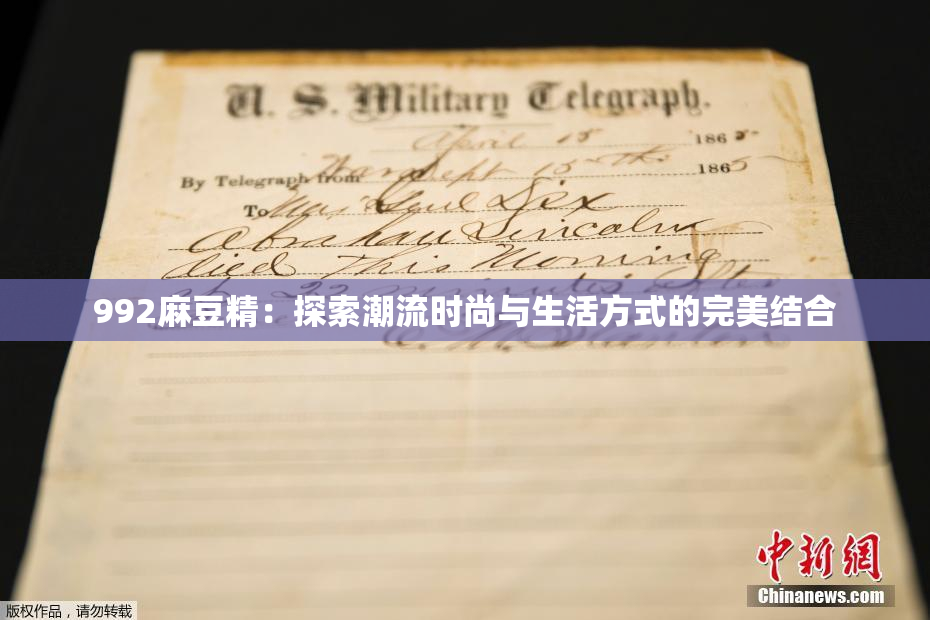 U. S. Military Telegraph.
April 15 1865
By Telegraph from War Dept 15th 1865
To Maj Genl Dix
Abraham Lincoln
died This Morning
at 22 minutes after
992麻豆精：探索潮流时尚与生活方式的完美结合
E. M. Stanton
中新網
Chinanews.com
版权作品，请勿转载